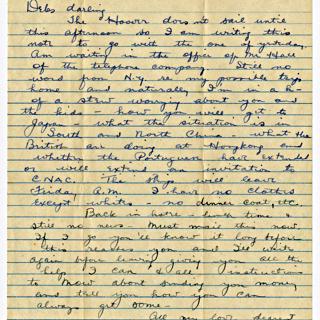 Debs darling
The Hoover does not sail until
this afternoon so I am writing this
note to go with the one of yesterday.
Am waiting in the office of Mr Hall
of the telephone company. Still no
word from N.Y. re my possible trip
home and naturally I'm in a h-
of a stew worrying about you and
the kids - how you will get to
Japan - what the situation is in
South and North China - what the
British are doing at Hongkong and
whether the Portuguese have extended
or will extend an invitation to
CNAC. The ship will leave
Friday A.M. I have no clothes
except whites - no dinner coat, etc.
Back in hotel - lunch time &
still no news - Must mail this now.
If I go you'll know it long before
this reaches you and I'll write
again before leaving giving you all the
help I can & all instructions
to Mow about sending you money
and tell you how you can
always get some.
All my love dearest